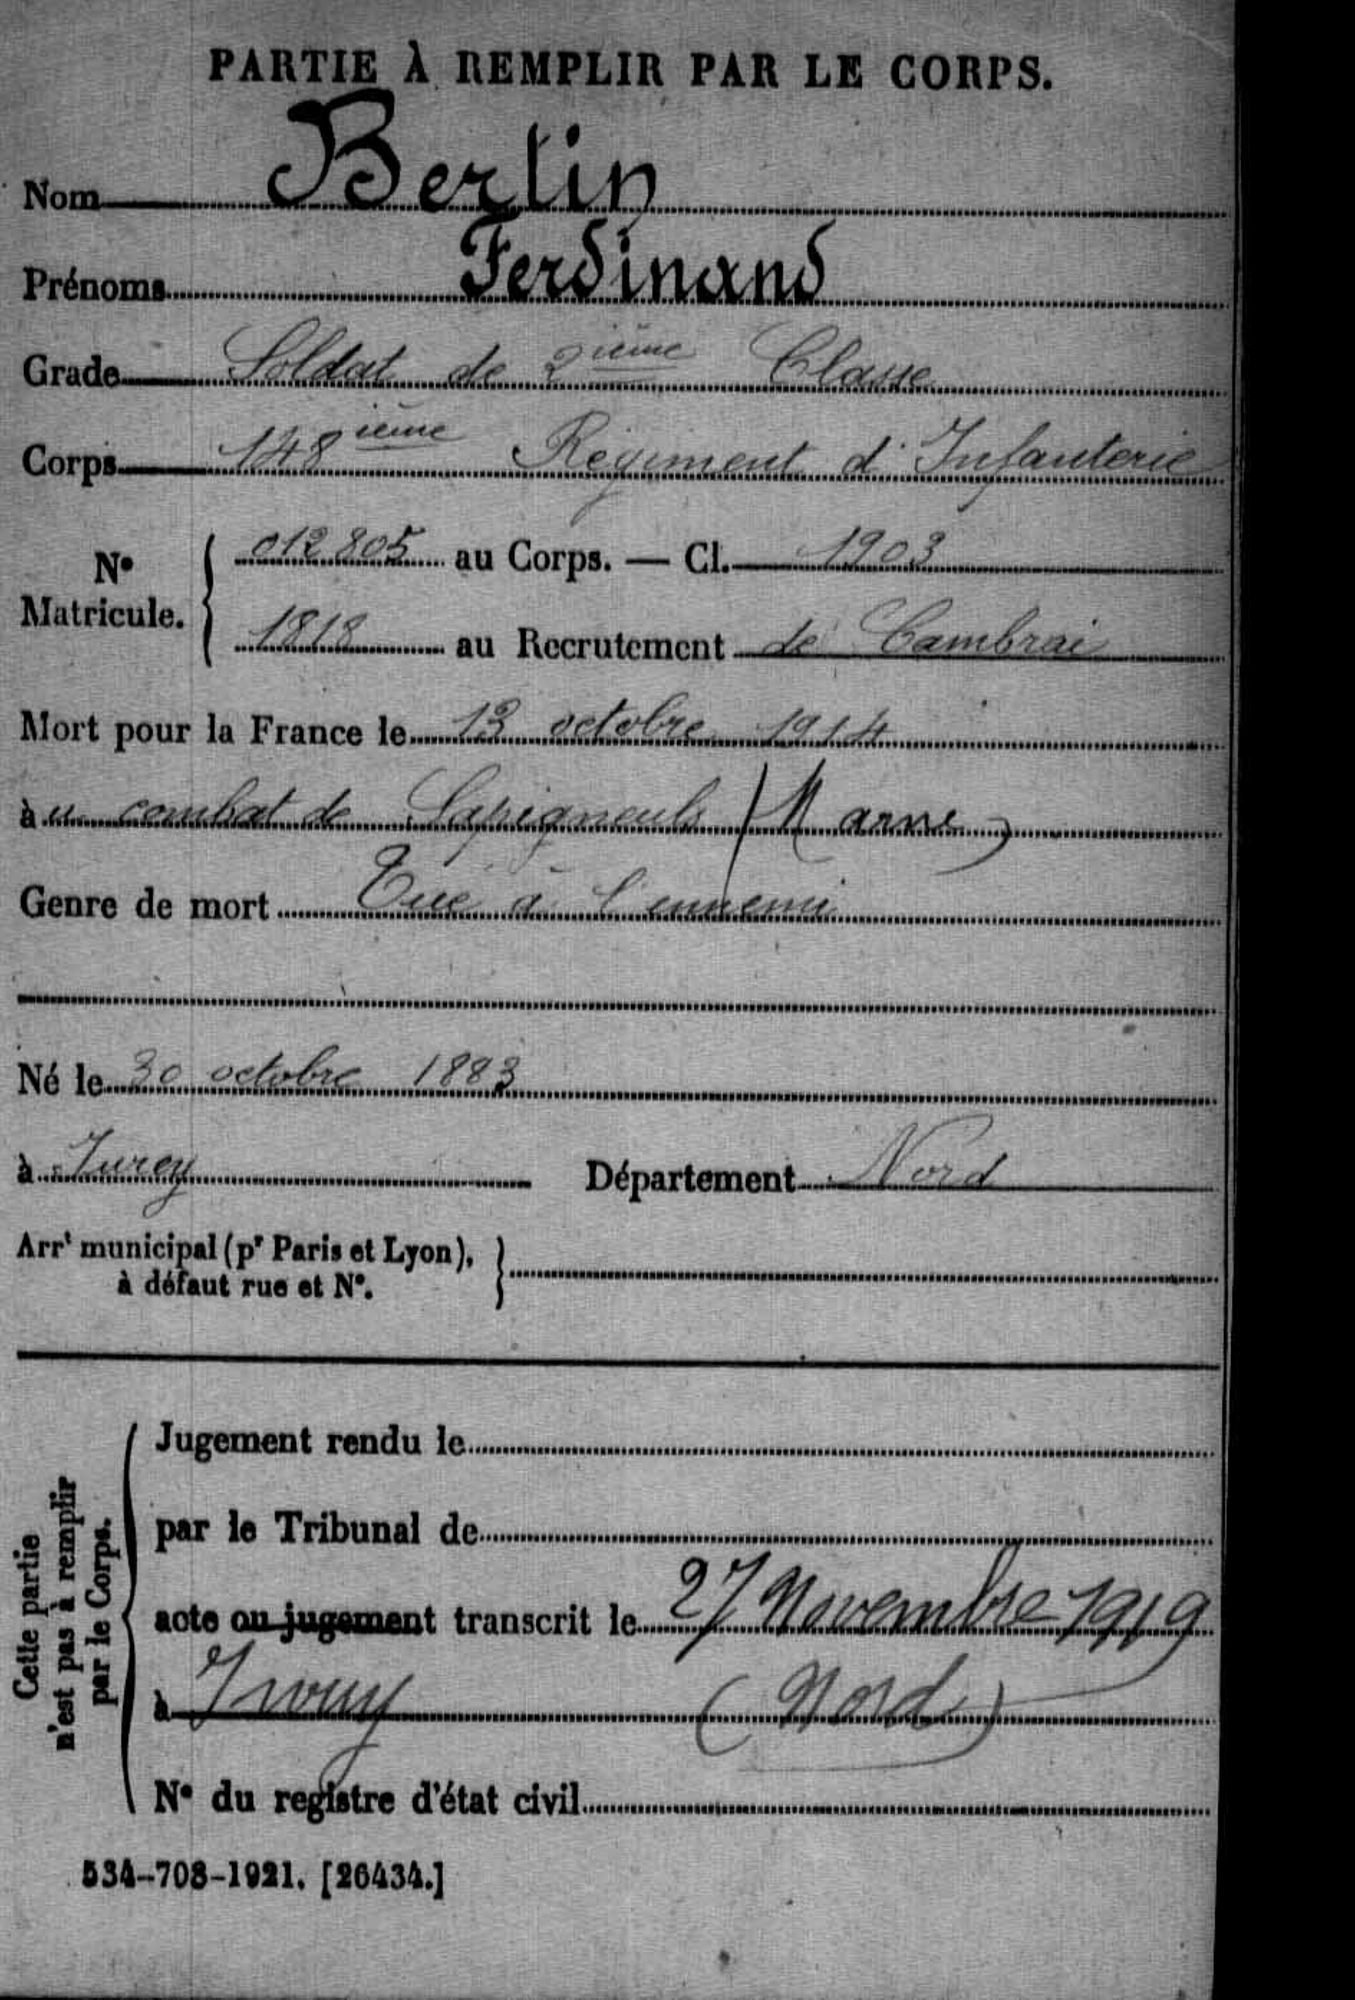 PARTIE À REMPLIR PAR LE CORPS.
Nom Bertin
Prénoms Ferdinand
Grade Soldat de 2ième Classe
Corps 148ième Régiment d'Infanterie
No Matricule. { 012805 au Corps. — Cl. 1903
1818 au Recrutement de Cambrai
Mort pour la France le 13 octobre 1914
à u combat de Sapigneuls (Marne)
Genre de mort Tué à l'ennemi
Né le 30 octobre 1883
à Département Nord
Arrt municipal (pr Paris et Lyon), à défaut rue et No. }
Cette partie n'est pas à remplir par le Corps.
Jugement rendu le
par le Tribunal de
acte ou jugement transcrit le 27 Novembre 1919
à Iwuy (Nord)
No du registre d'état civil
534-708-1921. [26434.]